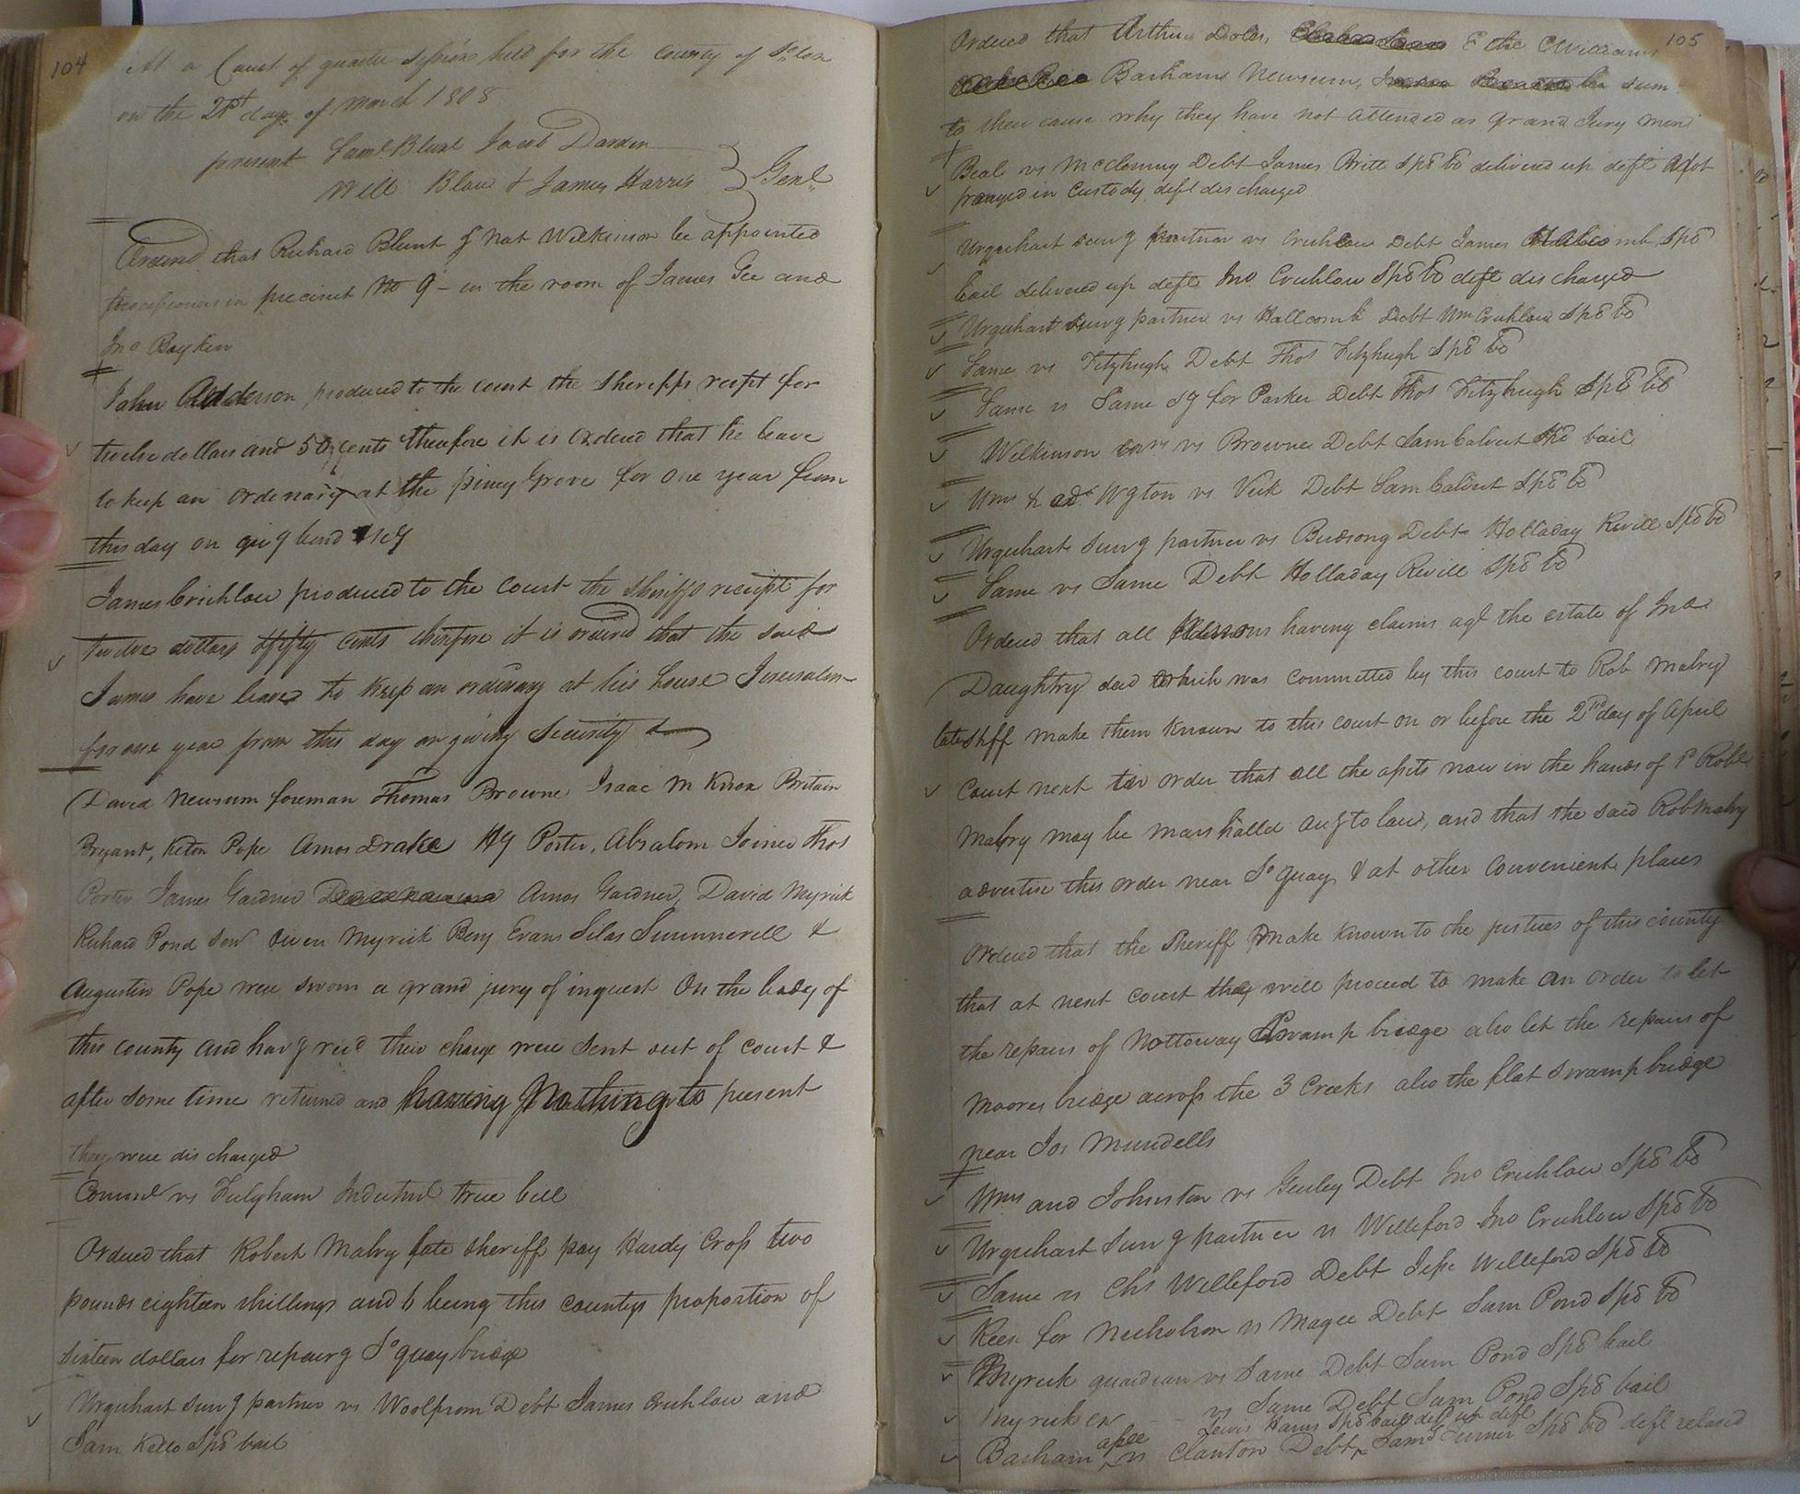 104
At a Court of quarter Sessions held for the county of So'ton
on the 21st day of March 1808
present Saml Blunt Jacob Darden
Will Blow & James Harris } Gent
Ordered that Richard Blunt & Nat Wilkinson be appointed
processioners in precinct No 9 - in the room of James Gee and
Jno Boykin
John Adderson produced to the court the Sheriffs recept for
twelve dollars and 50 cents therefore it is ordered that he leave
to keep an ordenary at the piney Grove for one year from
this day on givg bond &cy
James Crichlow produced to the Court the Sheriffs receipt for
twelve dollars & fifty cents therefore it is ordered that the said
James have leave to keep an ordinary at his house Jerusalem
for one year from this day on giving Security &
David Newsum foreman Thomas Browne Isaac M Knox Britain
Bryant, Keton Pope Amos Drake Hy Porter, Absalom Joiner Thos
Porter James Gardner Amos Gardner, David Myrick
Richard Pond Senr Owen Myrick Benj Evans Silas Summerell &
Augustin Pope were sworn a grand jury of inquest On the body of
this county and havg recd their charge were sent out of court &
after some time returned and having Nothing to present
they were discharged
Comwl vs Fulgham Indictmt true bill
Ordered that Robert Mabry late sheriff pay Hardy Cross two
pounds eighteen shillings and 6 being this countys proportion of
sixteen dollars for repairg So quay bridge
Urquhart survg partner vs Woolfrom Debt James Crichlow and
Sam Kello Spc bail
105
Ordered that Arthur Doles, & the Williams
Barham Newsum, be sum-
to shew cause why they have not attended as Grand Jury men
Beal vs McClenny Debt James Britt Spc bb delivered up deft
prayed in Custody deft discharged
Urquhart survg partner vs Crichlow Debt James Halcomb, Spc
bail delivered up deft Jno Crichlow Spc bb deft discharged
Urquhart survg partner vs Hallcomb Debt Wm Crichlow Spc bb
Same vs Fitzhugh Debt Thos Fitzhugh Spc bb
Same vs Same sy for Parker Debt Thos Fitzhugh Spc bb
Wilkinson vs Browne Debt Sam Calvert Spc bail
Wms & vs Vick Debt Sam Calvert Spc bb
Urquhart survg partner vs Birdsong Debt Holladay Revill Spc bb
Same vs Same Debt Holladay Revill Spc bb
Ordered that all persons having claims agt the estate of Jno
Daughtry decd which was committed by this court to Rob Mabry
late Shff make them known to this court on or before the 2nd day of April
Court next order that all the assets now in the hands of sd Robt
Mabry may be marshalled accg to law, and that the said Rob Mabry
advertise this order near So quay & at other convenient places
Ordered that the Sheriff make known to the justices of this county
that at next court they will proceed to make an order to let
the repairs of Nottoway Swamp bridge also let the repairs of
Moores bridge across the 3 Creeks also the flat swamp bridge
near Jos Mundells
Wms and Johnston vs Gurley Debt Jno Crichlow Spc bb
Urquhart Survg partner vs Williford Jno Crichlow Spc bb
Same vs Chs Williford Debt Jesse Williford Spc bb
Keen for Nicholson vs Magee Debt Sam Pond Spc bb
Myrick guardian vs Same Debt Sam Pond Spc bail
Myricks ex vs Same Debt Sam Pond Spc bail
Lewis Harris Spc bail deld up deft
Barham assee vs Clanton Debt, Saml Turner Spc bb deft relased